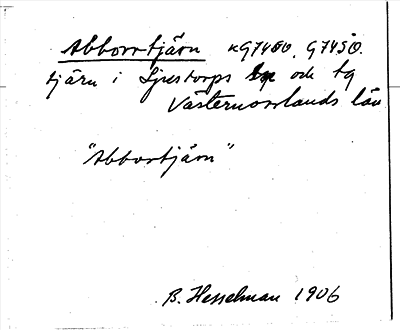 Abborrtjärn KG7450. G7450.
tjärn i Ljustorps sn och tg
Västernorrlands län
"Abbortjärn"
B. Hesselman 1906